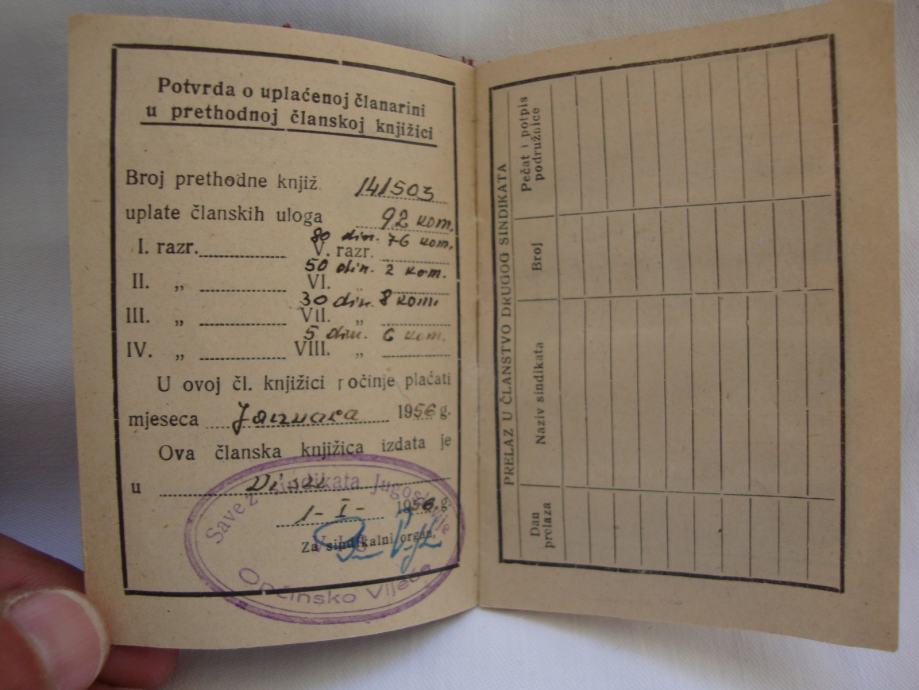 Potvrda o uplaćenoj članarini
u prethodnoj članskoj knjižici
Broj prethodne knjiž. 141503
uplate članskih uloga 92 kom.
80 din. 76 kom.
I. razr. V. razr.
50 din. 2 kom.
II. „ VI. „
30 din. 8 kom.
III. „ VII. „
5 din. 6 kom.
IV. „ VIII. „
U ovoj čl. knjižici počinje plaćati
mjeseca Januara 1956 g.
Ova članska knjižica izdata je
u
1-I- 1956. g
Za sindikalni organ,
Savez sindikata Jugoslavije
Općinsko Vijeće
PRELAZ U ČLANSTVO DRUGOG SINDIKATA
Dan
prelaza
Naziv sindikata
Broj
Pečat i potpis
podružnice